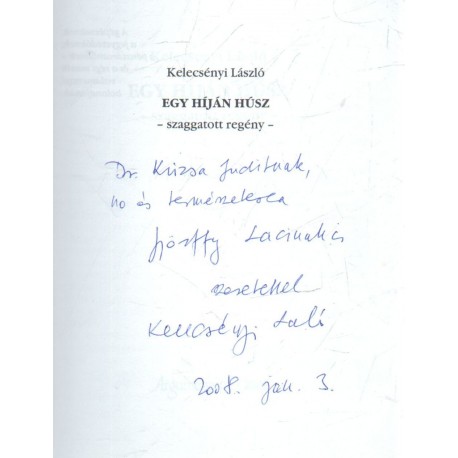 Kelecsényi László
EGY HÍJÁN HÚSZ
– szaggatott regény –
Dr. Krizsa Juditnak,
no és természetesen
Győrffy Lacinak is
szeretettel
Kelecsényi Laci
2008. jan. 3.